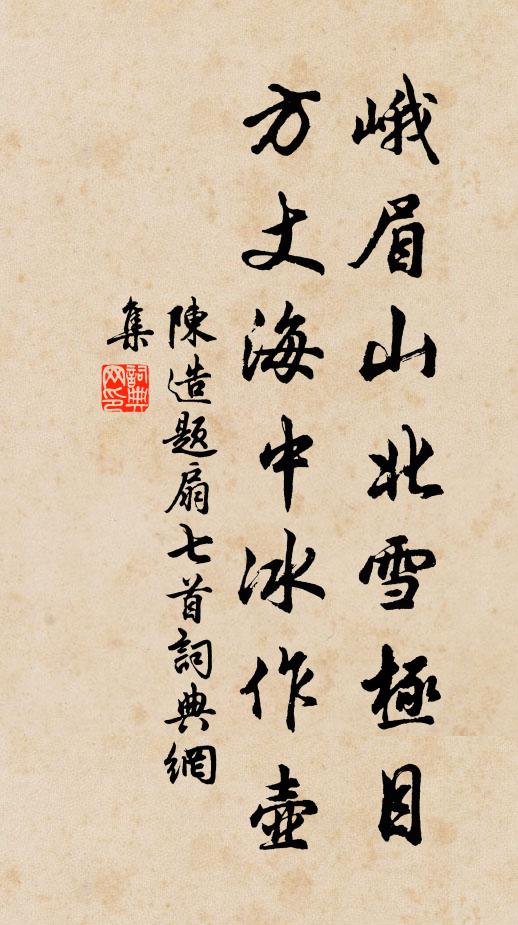 峨眉山北雪極目
方丈海中冰作壺
陳造題扇七首詞典網
集
詞典網印